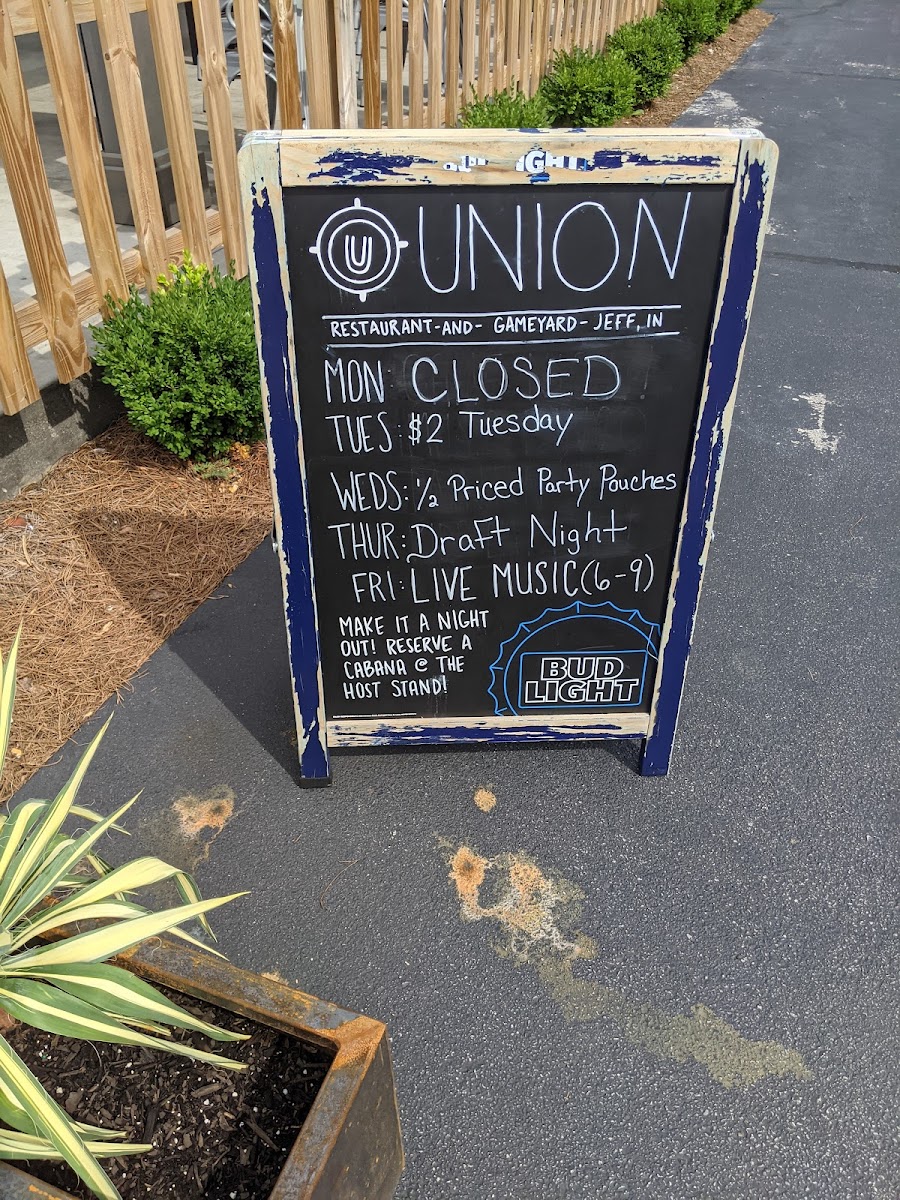 LIGHT
U UNION
RESTAURANT-AND- GAMEYARD- JEFF, IN
MON: CLOSED
TUES: $2 Tuesday
WEDS: ½ Priced Party Pouches
THUR: Draft Night
FRI: LIVE MUSIC (6-9)
MAKE IT A NIGHT
OUT! RESERVE A
CABANA @ THE
HOST STAND!
BUD
LIGHT